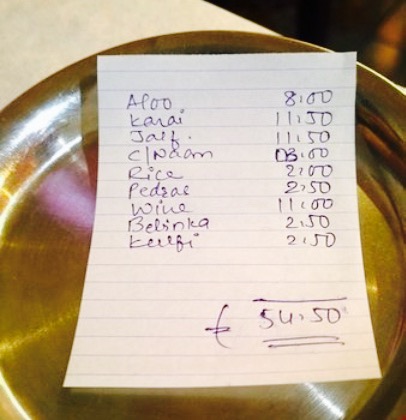 Aloo 8.00
Karai 11.50
Jalf. 11.50
C/Naan 03.00
Rice 2.00
Pedras 2.50
Wine 11.00
Belinka 2.50
Kulfi 2.50
€ 54.50